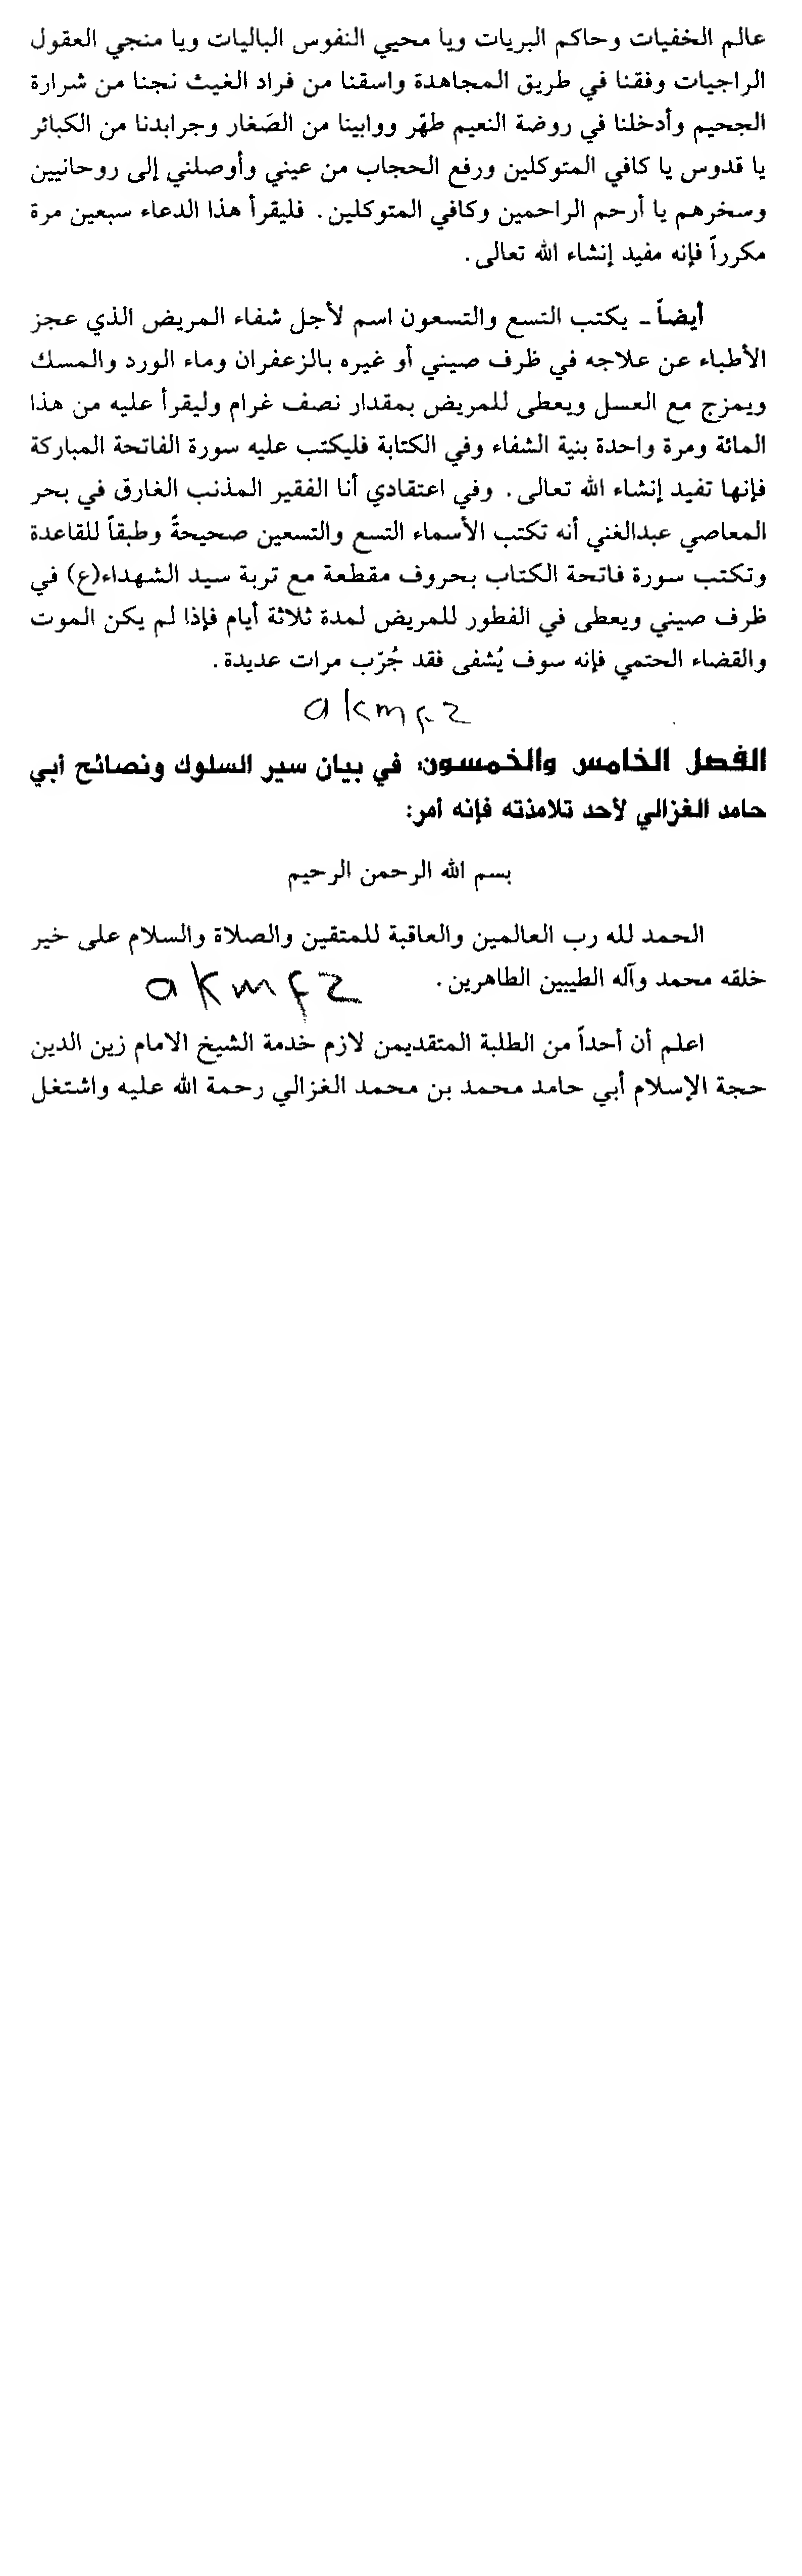 عالم الخفيات وحاكم البريات ويا محيي النفوس الباليات ويا منجي العقول
الراجيات وفقنا في طريق المجاهدة واسقنا من فراد الغيث نجنا من شرارة
الجحيم وأدخلنا في روضة النعيم طهّر ووابينا من الصَغار وجرابدنا من الكبائر
يا قدوس يا كافي المتوكلين ورفع الحجاب من عيني وأوصلني إلى روحانيين
وسخرهم يا أرحم الراحمين وكافي المتوكلين. فليقرأ هذا الدعاء سبعين مرة
مكرراً فإنه مفيد إنشاء الله تعالى.
أيضاً ـ يكتب التسع والتسعون اسم لأجل شفاء المريض الذي عجز
الأطباء عن علاجه في ظرف صيني أو غيره بالزعفران وماء الورد والمسك
ويمزج مع العسل ويعطى للمريض بمقدار نصف غرام وليقرأ عليه من هذا
المائة ومرة واحدة بنية الشفاء وفي الكتابة فليكتب عليه سورة الفاتحة المباركة
فإنها تفيد إنشاء الله تعالى. وفي اعتقادي أنا الفقير المذنب الغارق في بحر
المعاصي عبدالغني أنه تكتب الأسماء التسع والتسعين صحيحةً وطبقاً للقاعدة
وتكتب سورة فاتحة الكتاب بحروف مقطعة مع تربة سيد الشهداء(ع) في
ظرف صيني ويعطى في الفطور للمريض لمدة ثلاثة أيام فإذا لم يكن الموت
والقضاء الحتمي فإنه سوف يُشفى فقد جُرّب مرات عديدة.
akmfz
الفصل الخامس والخمسون: في بيان سير السلوك ونصائح أبي
حامد الغزالي لأحد تلامذته فإنه أمر:
بسم الله الرحمن الرحيم
الحمد لله رب العالمين والعاقبة للمتقين والصلاة والسلام على خير
خلقه محمد وآله الطيبين الطاهرين.
akmfz
اعلم أن أحداً من الطلبة المتقديمن لازم خدمة الشيخ الامام زين الدين
حجة الإسلام أبي حامد محمد بن محمد الغزالي رحمة الله عليه واشتغل